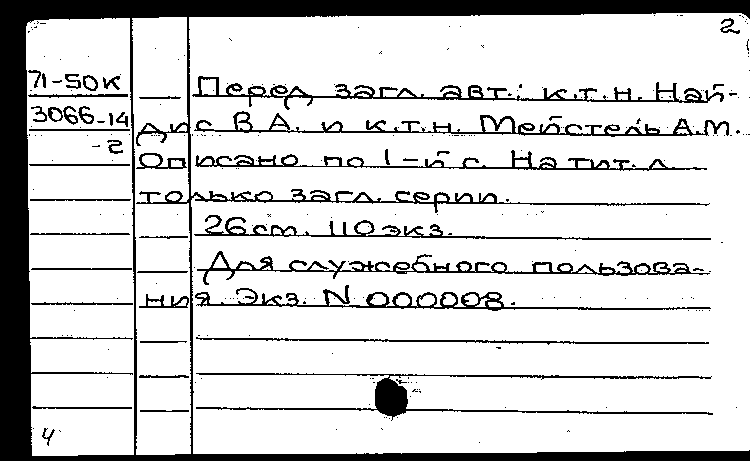 2
71-50к Перед загл. авт.: к.т.н. Най-
3066-14 дис В.А. и к.т.н. Мейстель А.М.
-2 Описано по 1-й с. На тит. л.
только загл. серии.
26 cm. 110 экз.
Для служебного пользова-
ния. Экз. N 000008.
4